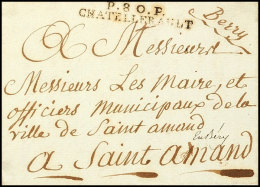 P.80.P.
CHATELLERAULT
Berry
A Messieurs
Messieurs Les Maire, et
officiers Municipaux de la
ville de Saint amand
en Berri
a Saint amand